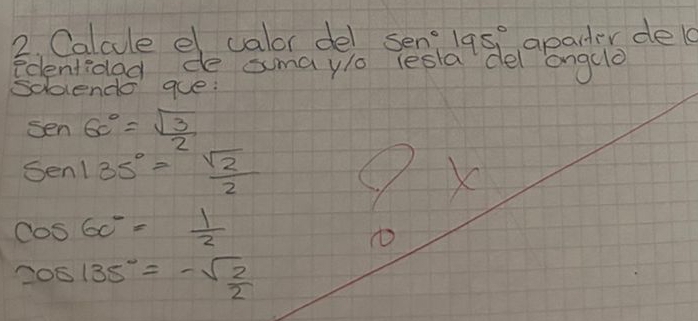 2. Calcule el valor del sen° 195° apartir de la
identidad de suma y/o resta del angulo
sabiendo que:
sen 60° = √3/2
sen 135° = √2/2
cos 60° = 1/2
cos 135° = -√2/2
? x
0